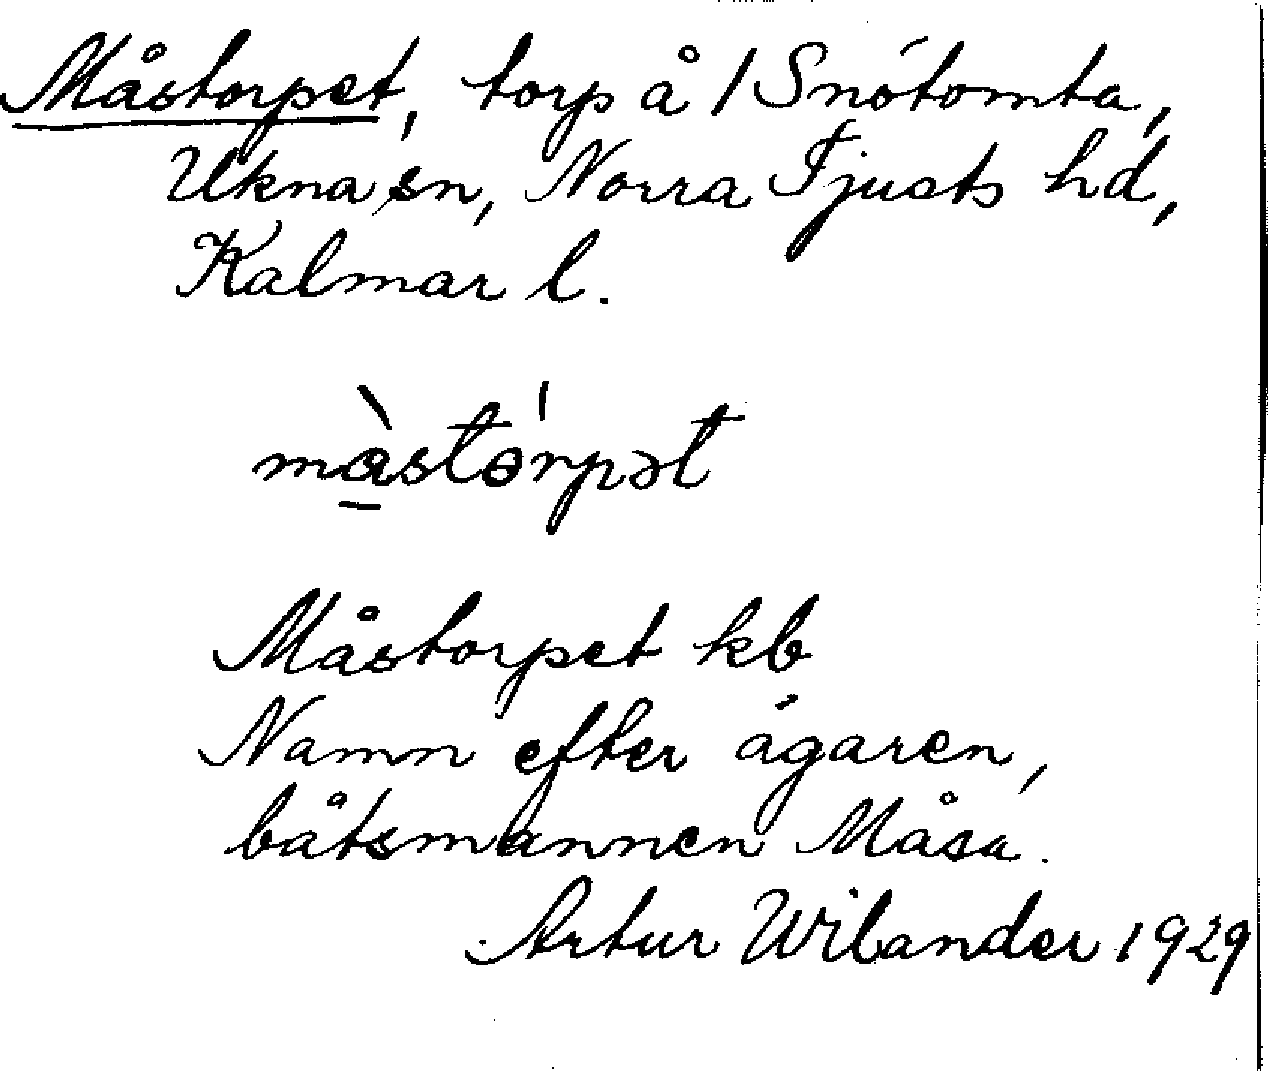 Måstorpet, torp å 1 Snötomta,
Ukna sn, Norra Tjusts hd,
Kalmar l.
Måstorpet kb
Namn efter ägaren,
båtsmannen Måsa.
Artur Wilander 1929